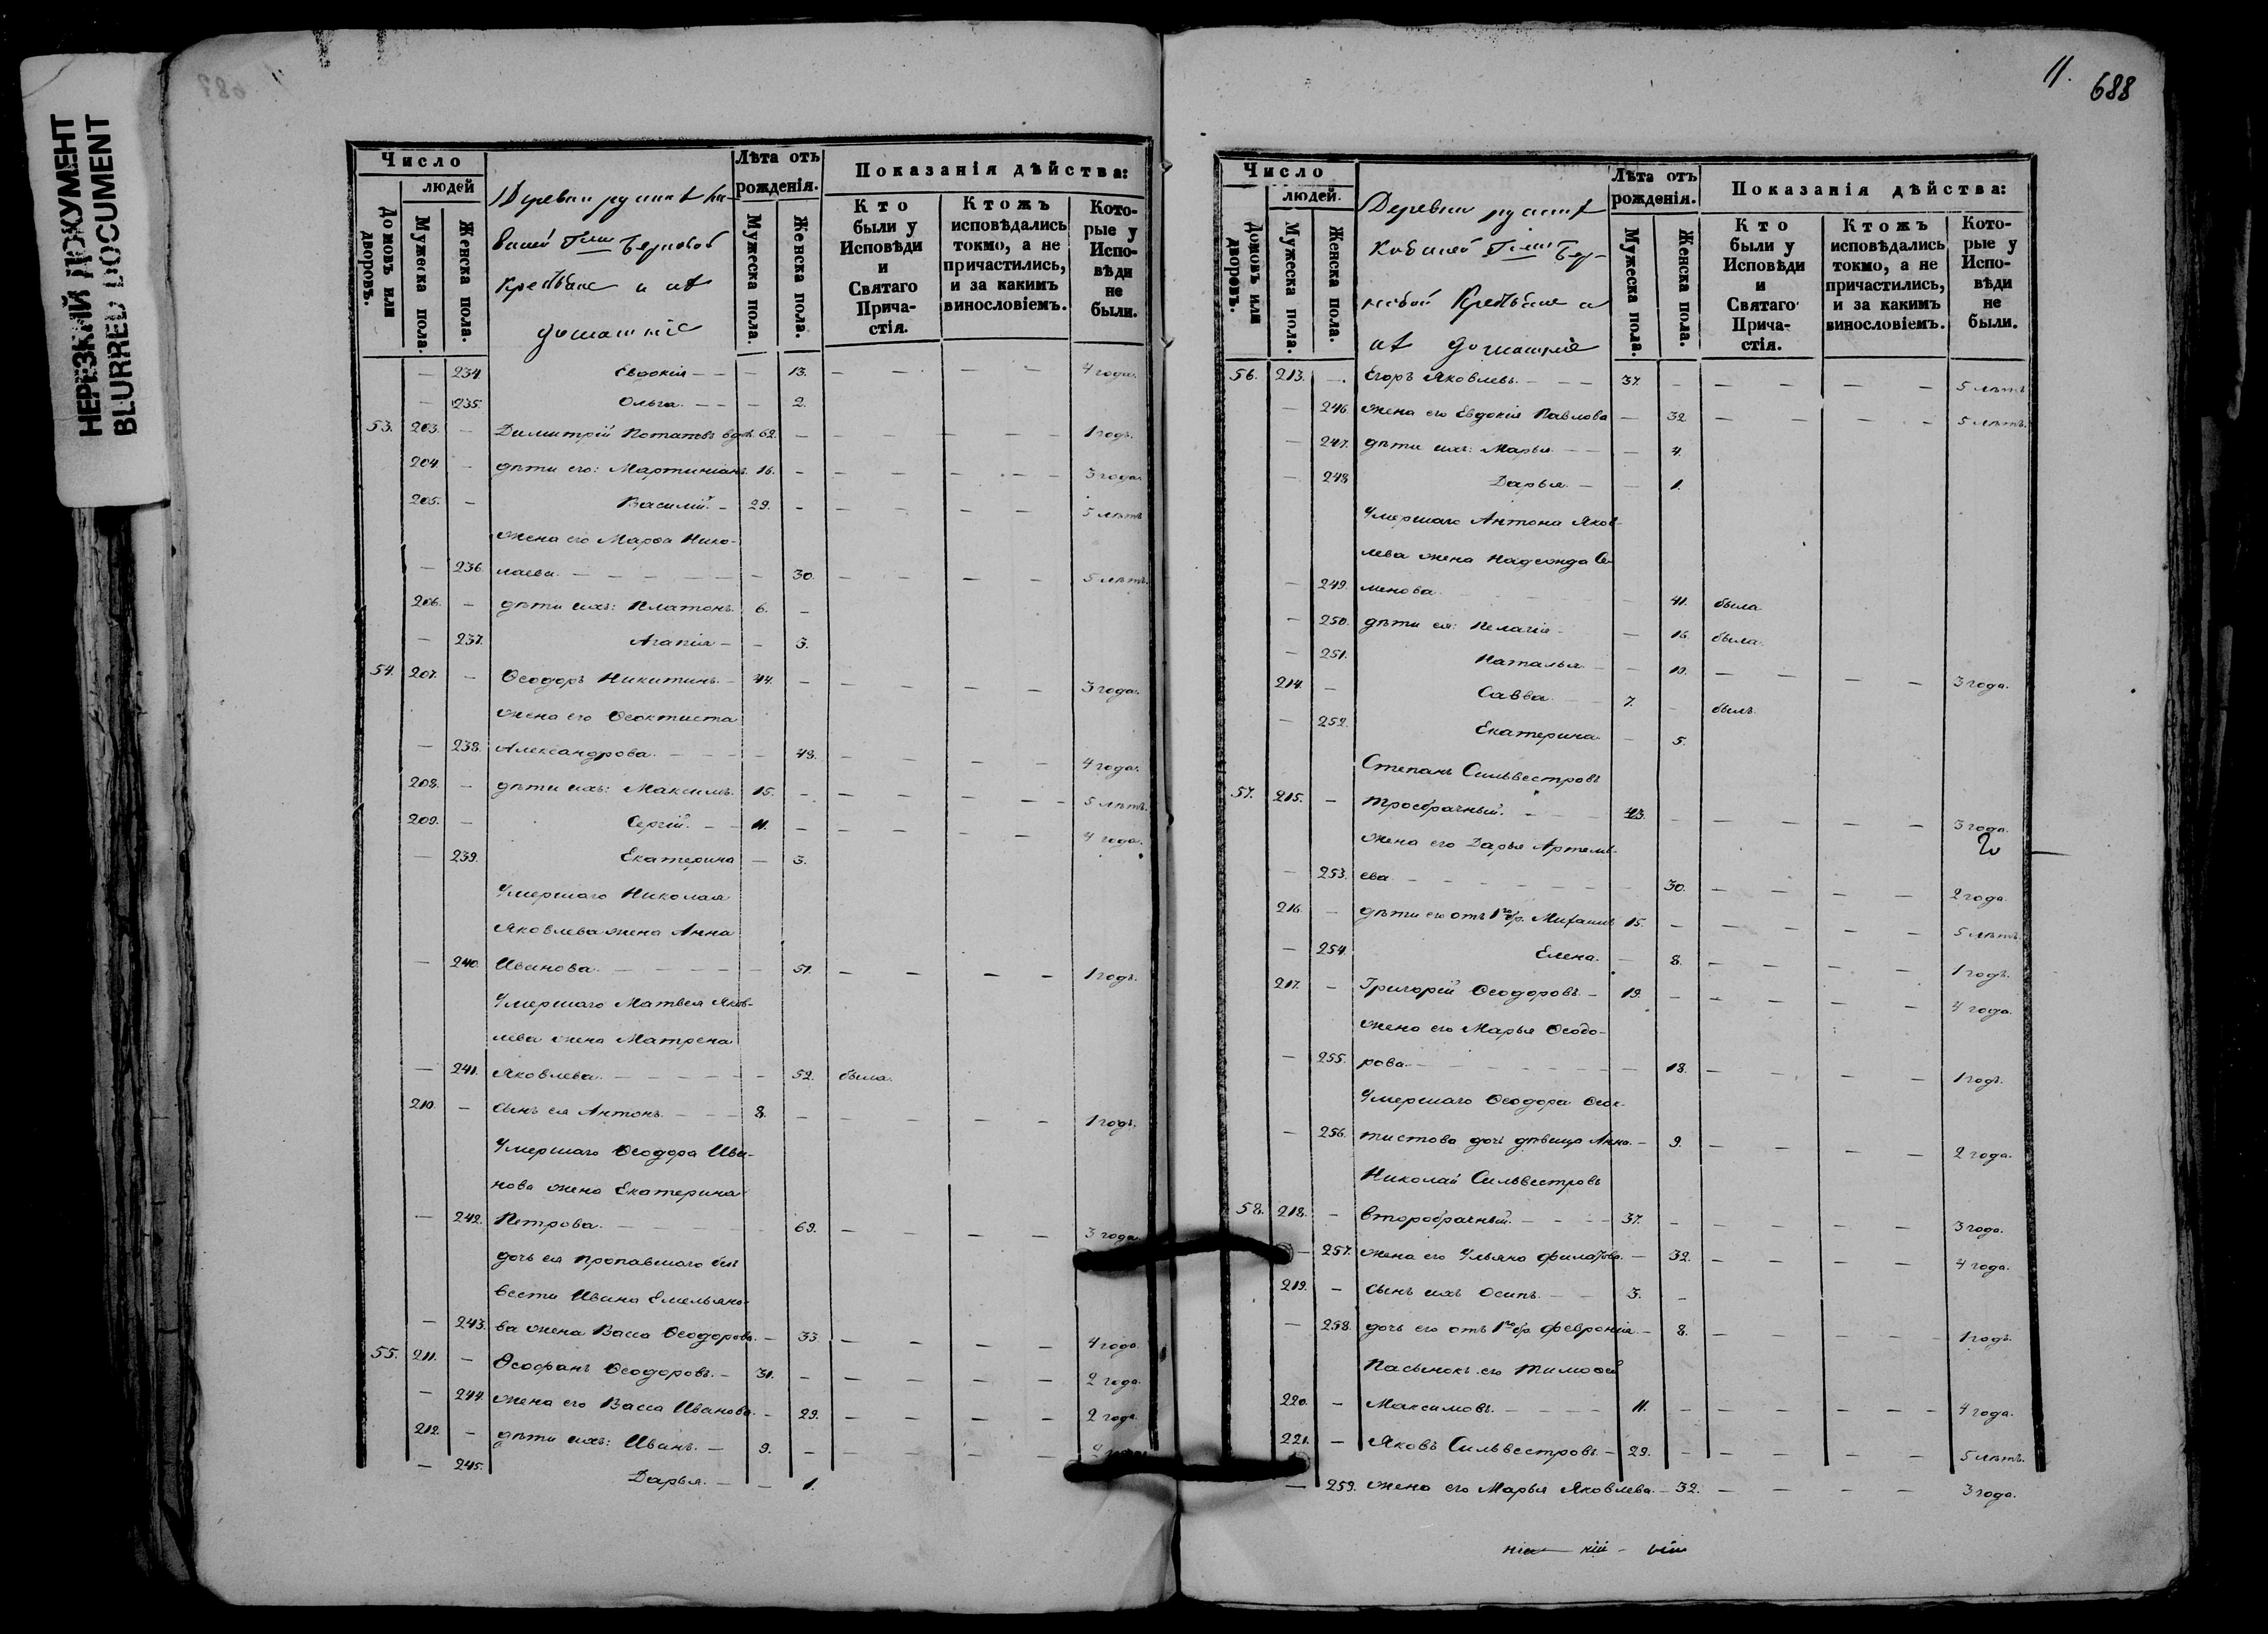 НЕРЕЗКИЙ ДОКУМЕНТ
BLURRED DOCUMENT
Число
людей
Домовъ или дворовъ.
Мужеска пола.
Женска пола.
Деревни
Крестьяне и ихъ
домашніе
Лѣта отъ рожденія.
Мужеска пола.
Женска пола.
Показанія дѣйства:
Кто были у Исповѣди и Святаго Причастія.
Ктожъ исповѣдались токмо, а не причастились, и за какимъ винословіемъ.
Которые у Исповѣди не были.
— 234. Евдокія — — — 13. — — — — 4 года.
— 235. Ольга. — — — 2.
53. 203. — Димитрій Потаповъ вдов. 62. — — — — — 1 годъ.
204. — дѣти его: Мартиніанъ. 16. — — — — — 3 года.
205. — Василій. — 29. — — — — — 5 лѣтъ
жена его Марѳа Нико-
— 236. лаева. — — — — — 30. — — — — 5 лѣтъ.
206. — дѣти ихъ: Платонъ. 6. —
— 237. Агапія — — 3.
54. 207. — Ѳеодоръ Никитинъ. — 44. — — — — — 3 года.
жена его Ѳеоктиста
— 238. Александрова. — — — — 49. — — — — 4 года.
208. — дѣти ихъ: Максимъ. 15. — — — — — 5 лѣтъ.
209. — Сергій. — — 11. — — — — — 4 года.
— 239. Екатерина — 3.
Умершаго Николая
Яковлева жена Анна
— 240. Иванова. — — — — — 51. — — — — 1 годъ.
Умершаго Матвея Яков-
лева жена Матрена
— 241. Яковлева. — — — — — 52. была.
210. — Сынъ ея Антонъ. — — — 8. — — — — — 1 годъ.
Умершаго Ѳеодора Ива-
нова жена Екатерина
— 242. Петрова. — — — — — 69. — — — — 3 года
дочь ея пропавшаго безъ
вести Ивана Емельяно-
— 243. ва жена Васса Ѳеодорова. — 33. — — — — 4 года
55. 211. — Ѳеофанъ Ѳеодоровъ. — 31. — — — — — 2 года.
— 244. жена его Васса Иванова. — 29. — — — — 2 года.
212. — дѣти ихъ: Иванъ. — 9. — — — — —
— 245. Дарья. — — 1.
11. 688
Число
людей.
Домовъ или дворовъ.
Мужеска пола.
Женска пола.
Деревни
Крестьяне и
ихъ домашніе
Лѣта отъ рожденія.
Мужеска пола.
Женска пола.
Показанія дѣйства:
Кто были у Исповѣди и Святаго Причастія.
Ктожъ исповѣдались токмо, а не причастились, и за какимъ винословіемъ.
Которые у Исповѣди не были.
56. 213. — Егоръ Яковлевъ. — — — 37. — — — — — 5 лѣтъ
— 246. жена его Евдокія Павлова — 32. — — — — 5 лѣтъ.
— 247. дѣти ихъ: Марья. — — — 4.
— 248. Дарья. — — 1.
Умершаго Антона Яков-
лева жена Надежда Се-
— 249. менова. 41. была
— 250. дѣти ея: Пелагія — — 16. была.
— 251. Наталья. — — 10. — — — — 3 года.
214. — Савва. — — 7. — былъ.
— 252. Екатерина — 5.
Степанъ Сильвестровъ
57. 215. — троебрачный. — — — 43. — — — — — 3 года.
жена его Дарья Артемь-
— 253. ева — — — — — — 30. — — — — 2 года.
216. — дѣти его отъ 1го бр. Михаилъ 15. — — — — — 5 лѣтъ.
— 254. Елена. — 8. — — — — 1 годъ.
217. — Григорій Ѳеодоровъ. — 19. — — — — — 4 года.
жена его Марья Ѳеодо-
— 255. рова. — — — — — — 18. — — — — 1 годъ.
Умершаго Ѳеодора Ѳеок-
— 256. тистова дочь дѣвица Анна. — 9. — — — — 2 года.
Николай Сильвестровъ
58. 218. — второбрачный. — — — 37. — — — — — 3 года.
— 257. жена его Ульяна Филатова. — 32. — — — — 4 года.
219. — Сынъ ихъ Осипъ. — — 3. —
— 258. дочь его отъ 1го бр. Февронія. — 8. — — — — 1 годъ.
Пасынокъ его Тимоѳей
220. — Максимовъ. — — — — 11. — — — — — 4 года.
221. — Яковъ Сильвестровъ. — 29. — — — — — 5 лѣтъ.
— 259. жена его Марья Яковлева. — 32. — — — — 3 года.